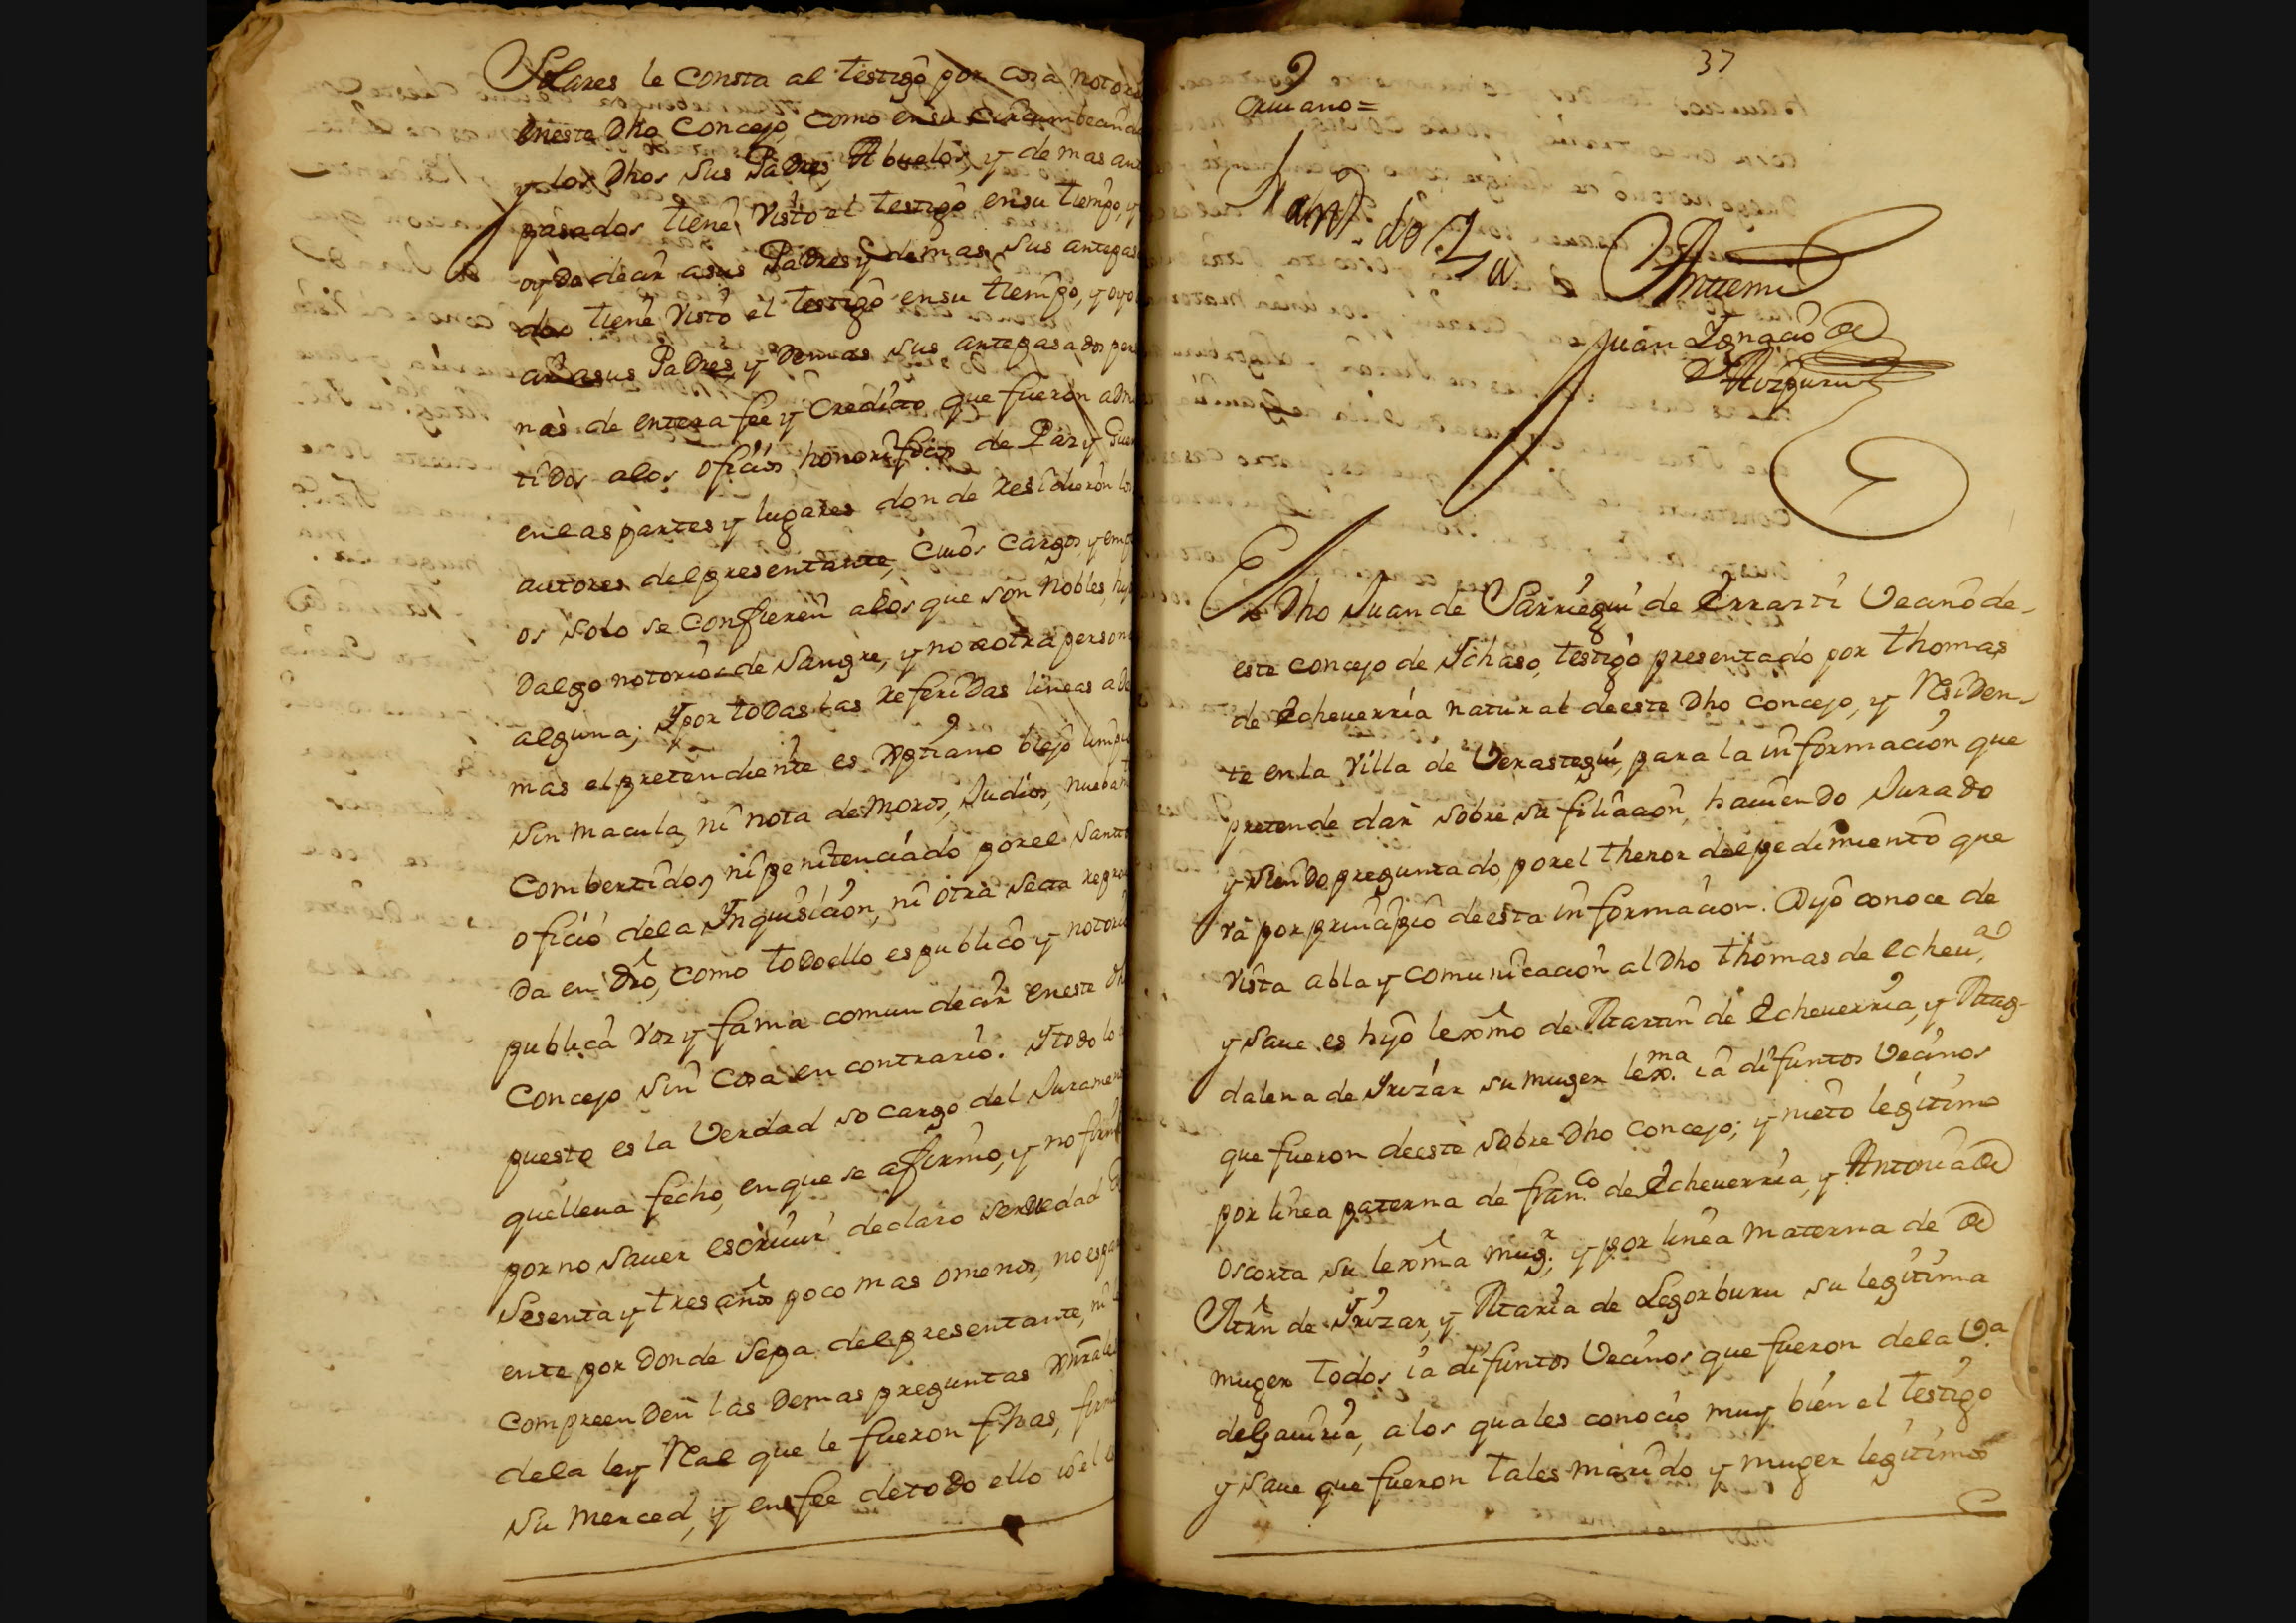 Solares le consta al testigo por cosa notori
eneste dho Concejo, como en su circumbecinda
y los dhos sus Padres, Abuelos, y demas ante
pasados tiene Visto el testigo ensu tiempo, y
oydo decir asus Padres y demas sus antepas
dos tiene Visto el testigo ensu tiempo, y oyo
asus Padres, y demas sus antepasados per
nas de entera fee y Credito que fueron admi
tidos alos oficios honorificos de Paz y Guer
enlas partes y lugares donde residieron los
autores delpresentante, cuios cargos y emple
os solo se confieren alos que son Nobles, hijos
dalgo notorios de Sangre, y no aotra persona
alguna; Ypor todas las referidas lineas ade
mas elpretendiente es xptiano biejo limpio
sin macula, ni nota de Moros, Judios, nuebamte
Combertidos, ni penitenciado porel Santo
oficio dela Inquisicion, ni otra Secta reproba
da en dro, como todoello es publico y notorio
publica voz y fama comun decir eneste dho
Concejo sin cosa en contrario. Ytodo lo
puesto es la Verdad so cargo del Juramento
quellena fecho, enque se afirmo, y no firmo
por no sauer escriuir declaro ser deedad de
Sesenta y tres años poco mas omenos, no espari
ente por donde sepa delpresentante, ni le
Compreenden las demas preguntas xnrales
dela ley Real que le fueron fhas, firmo
su Merced, y en fee detodo ello io el es
37
criuano=
Antemi
Juan Ignacio de
Aozpuru
El Dho Juan de Sarriegui de Errazti Vecino de
este concejo de Ichaso, testigo presentado por thomas
de Echeuerria natural deeste Dho Concejo, y Residen
te en la Villa de Verastegui, para la informacion que
pretende dar sobre su filiacion, hauiendo Jurado
y siendo preguntado, porel thenor delpedimiento que
va por principio deesta informacion. Dijo conoce de
Vista abla y comunicacion al Dho thomas de Echeua
y saue es hijo lexmo de Martin de Echeuerria, y Mag
dalena de Irizar su muger lexma ia difuntos Vecinos
que fueron deeste sobre Dho Concejo; y nieto legitimo
por linea paterna de Franco de Echeuerria, y Antonia de
Oscorta su lexma mugr, y por linea Materna de de
Mrn de Irizar, y Maria de Legorburu su legitima
muger todos ia difuntos Vecinos que fueron dela Va
deGauiria, alos quales conocio muy bien el testigo
y saue que fueron tales marido y muger legitimos